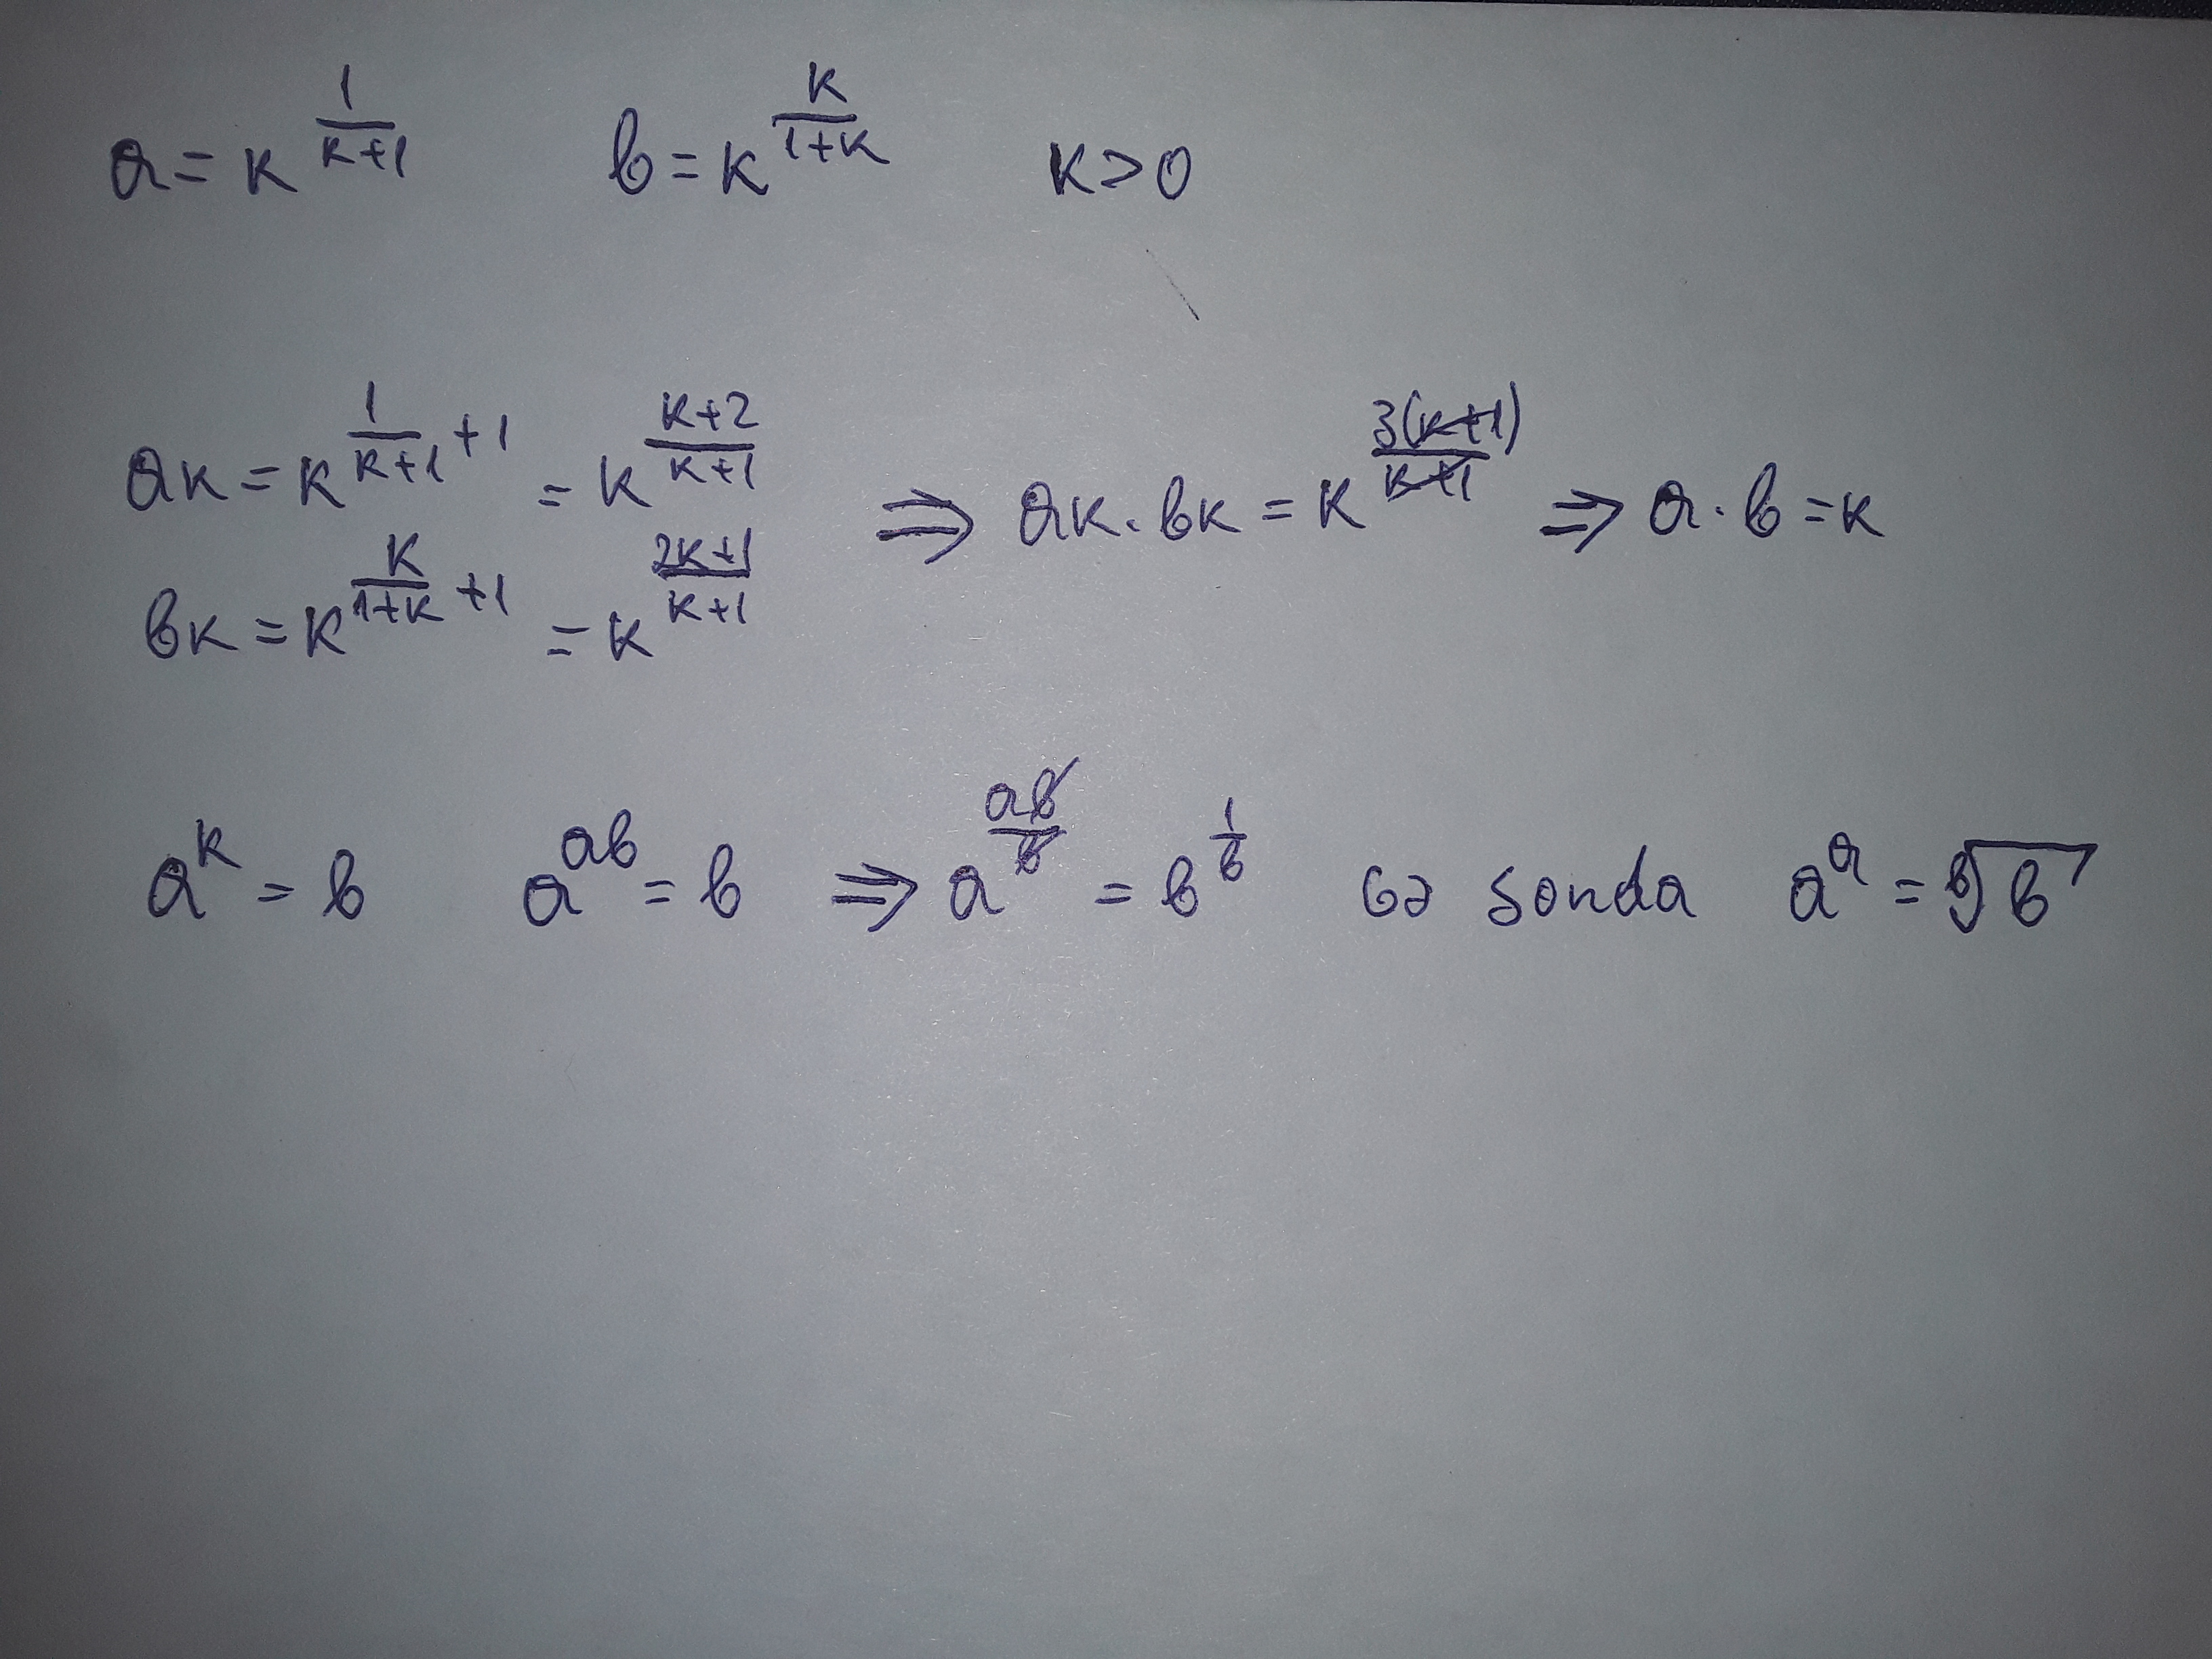 a = k^(1/(k+1))    b = k^(k/(1+k))    k > 0
ak = k^(1/(k+1) + 1) = k^((k+2)/(k+1))
bk = k^(k/(1+k) + 1) = k^((2k+1)/(k+1))
⇒ ak · bk = k^(3(k+1)/(k+1)) ⇒ a · b = k
a^k = b    a^(ab) = b ⇒ a^(ab/b) = b^(1/b)    və sonda    a^a = ᵇ√b